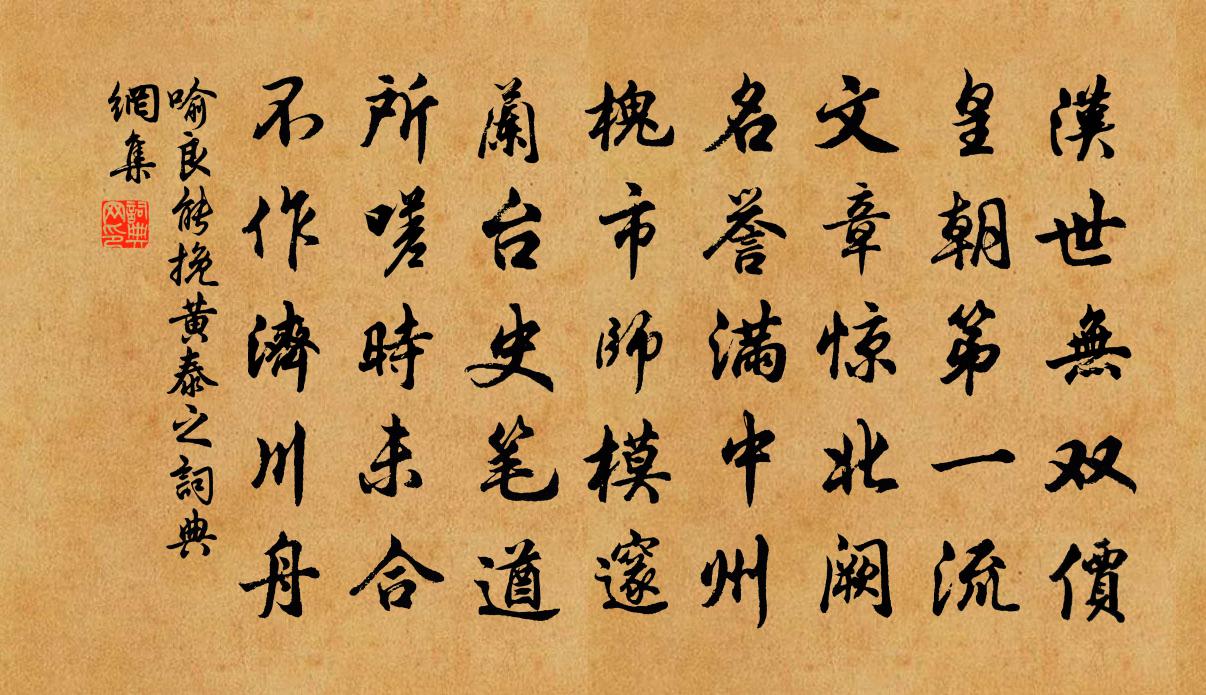 漢世無双價
皇朝第一流
文章惊北阙
名誉滿中州
槐市師模邃
蘭台史笔遒
所嗟時未合
不作濟川舟
喻良能挽黄泰之詞典
網集
詞典网印